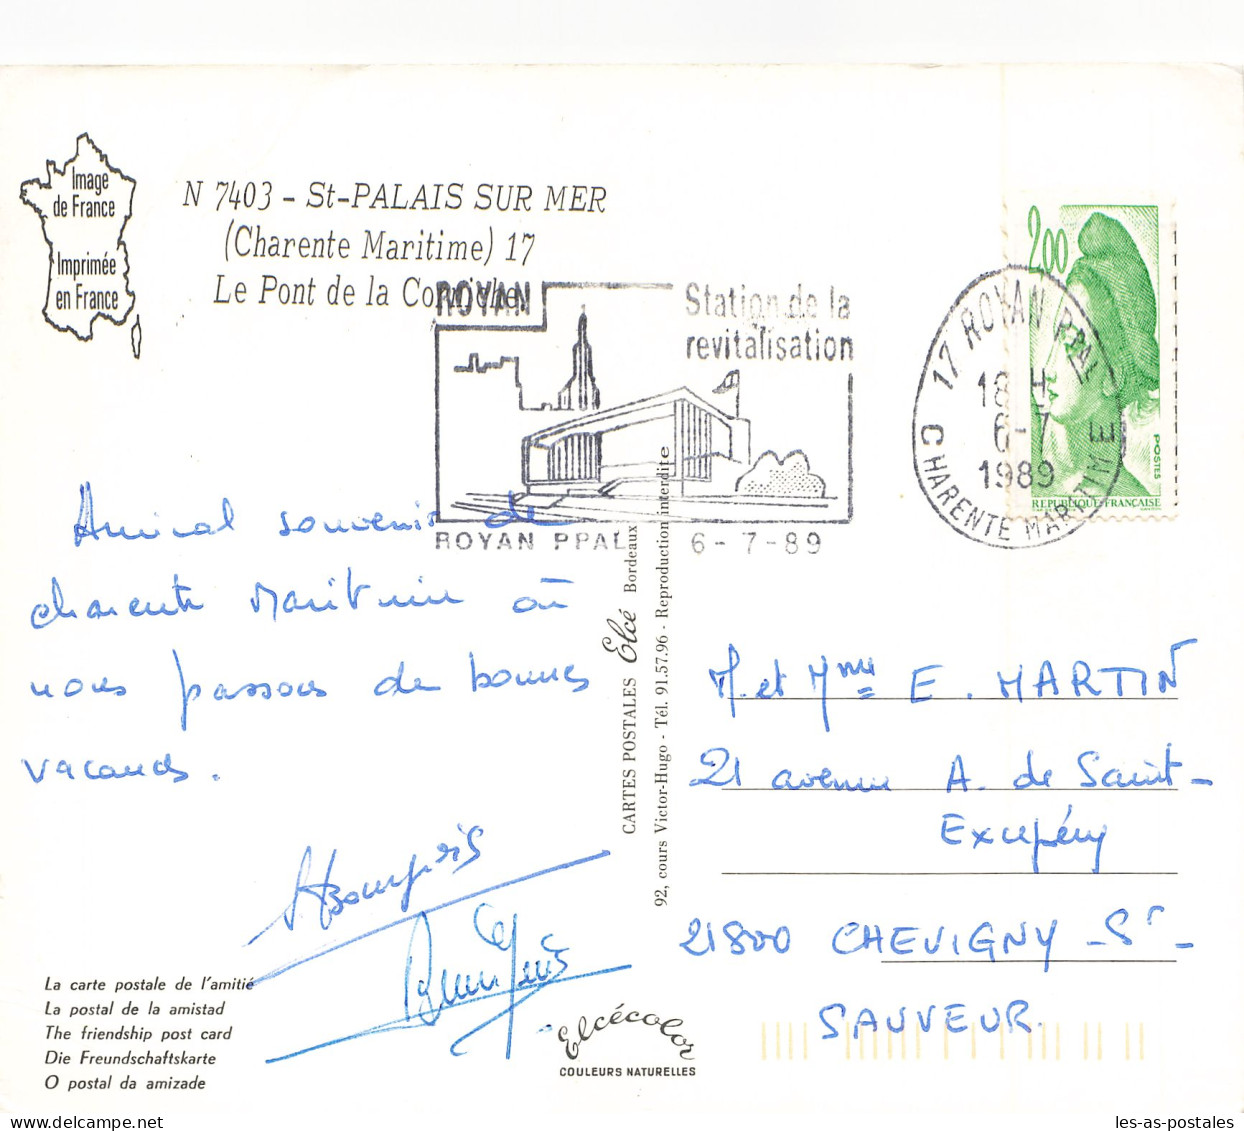 Image
de France
Imprimée
en France
N 7403 - St-PALAIS SUR MER
(Charente Maritime) 17
Le Pont de la Corniche
ROYAN
Station de la
revitalisation
ROYAN PPAL 6-7-89
17 ROYAN PPAL
18 H
6-7
1989
CHARENTE MARITIME
2,00
POSTES
REPUBLIQUE FRANÇAISE
Amical souvenir de
charente Maritime où
nous passons de bonnes
vacances.
CARTES POSTALES Elcé Bordeaux
92, cours Victor-Hugo - Tél. 91.57.96 - Reproduction interdite
M. et Mme E. MARTIN
21 avenue A. de Saint-
Exupéry
21800 CHEVIGNY-St-
SAUVEUR.
La carte postale de l'amitié
La postal de la amistad
The friendship post card
Die Freundschaftskarte
O postal da amizade
Elcécolor
COULEURS NATURELLES
delcampe.net
les-as-postales